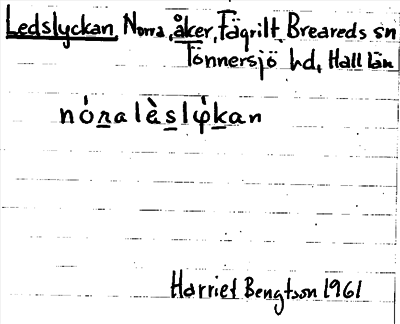 Ledslyckan, Norra, åker, Fägrilt, Breareds sn
Tönnersjö hd, Hall län
nó̱ṉalès̱lỳḵan
Harriet Bengtson 1961